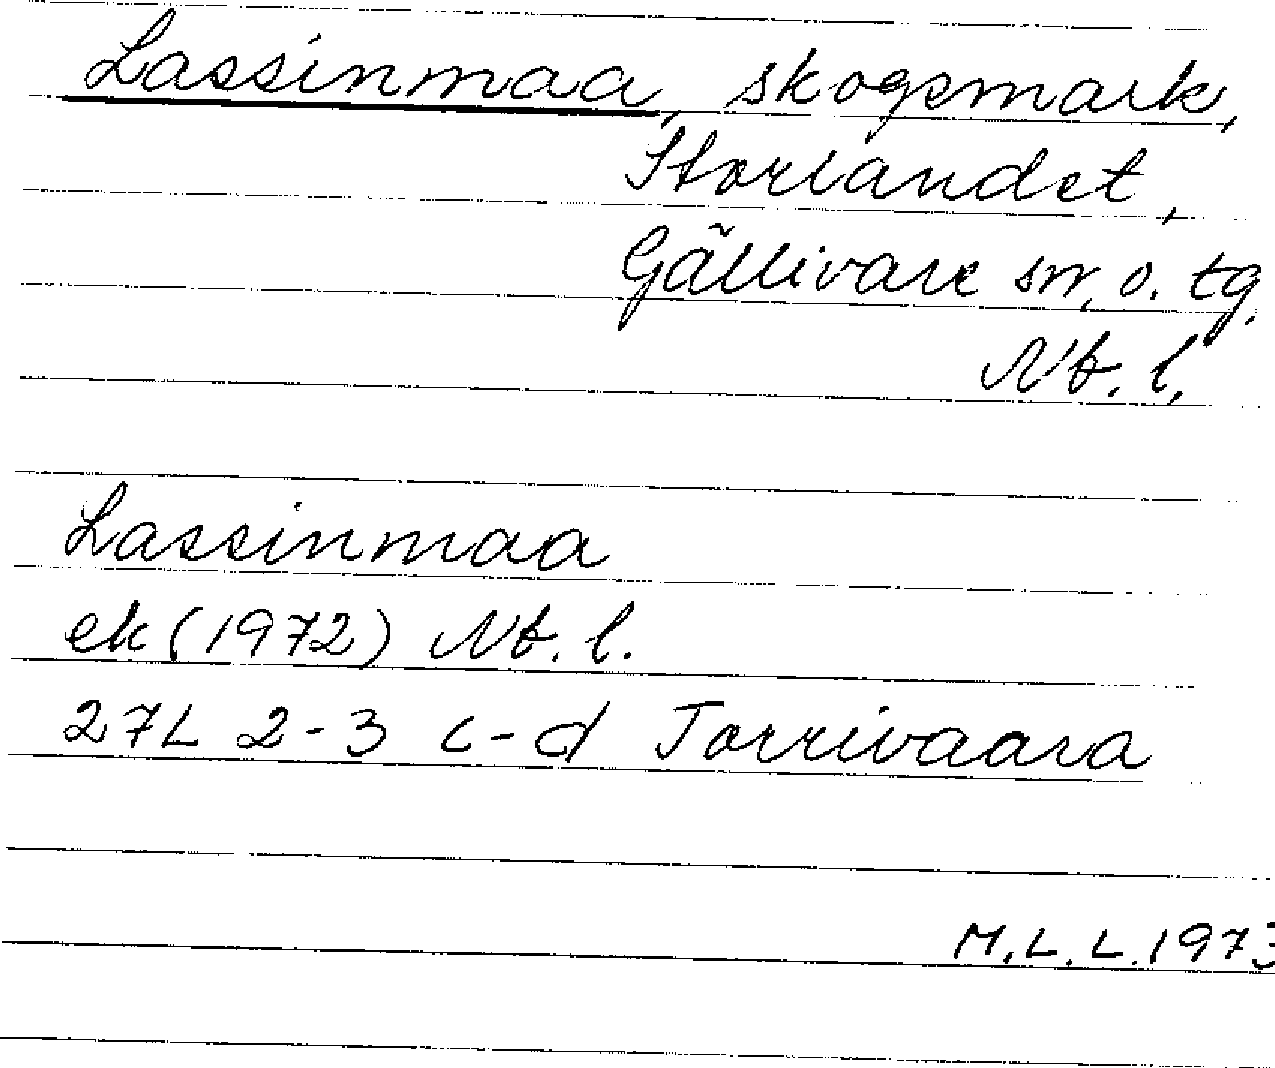 Lassinmaa, skogsmark,
Storlandet,
Gällivare sn, o. tg.
Nb. l.
Lassinmaa
ek (1972) Nb. l.
27L 2-3 c-d Torrivaara
M.L.L. 1973